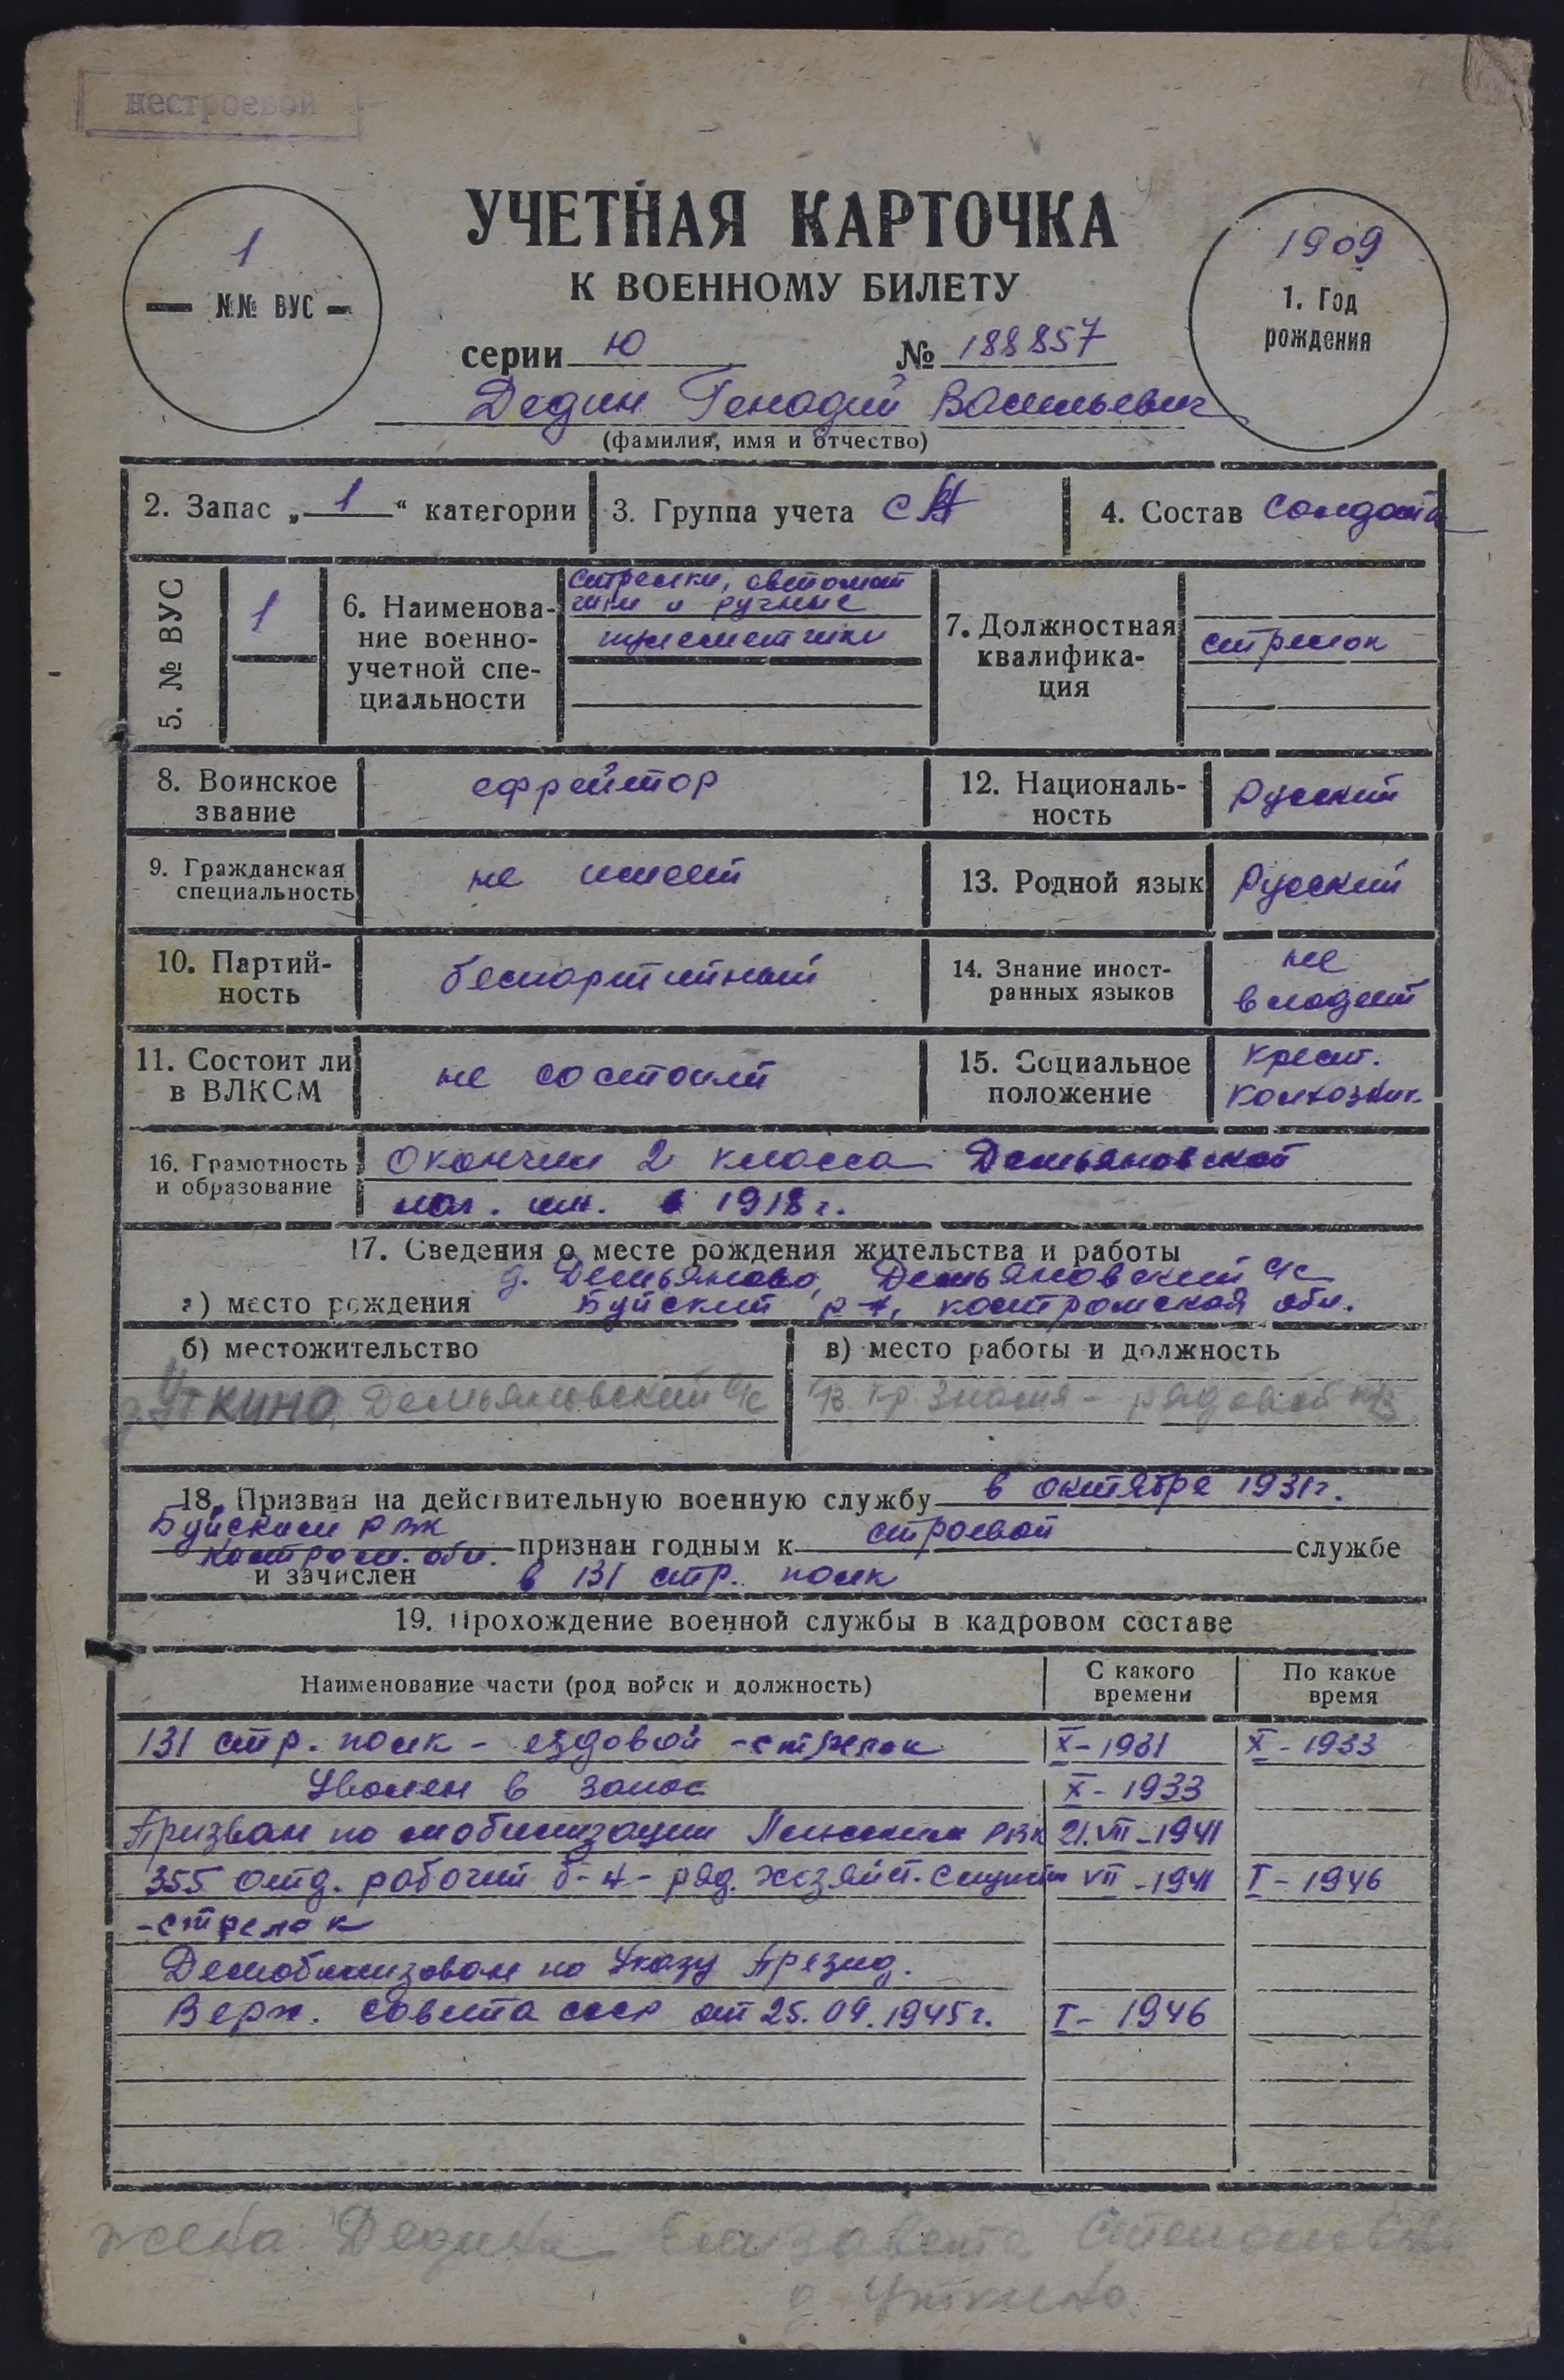 нестроевой
УЧЕТНАЯ КАРТОЧКА
К ВОЕННОМУ БИЛЕТУ
1
№№ ВУС
1909
1. Год
рождения
серии Ю № 188857
Дедин Генадий Васильевич
(фамилия, имя и отчество)
2. Запас „1“ категории
3. Группа учета СА
4. Состав Солдаты
5. № ВУС
1
6. Наименова-
ние военно-
учетной спе-
циальности
стрелки, автомат
чики и ручные
пулеметчики
7. Должностная
квалифика-
ция
стрелок
8. Воинское
звание
ефрейтор
12. Националь-
ность
Русский
9. Гражданская
специальность
не имеет
13. Родной язык
Русский
10. Партий-
ность
беспартийный
14. Знание иност-
ранных языков
не
владеет
11. Состоит ли
в ВЛКСМ
не состоит
15. Социальное
положение
крест.
колхозник.
16. Грамотность
и образование
Окончил 2 класса Демьяновской
нач. шк. в 1918 г.
17. Сведения о месте рождения жительства и работы
д. Демьяново, Демьяновский с/с
а) место рождения Буйский р-н, костромская обл.
б) местожительство
д. Уткино, Демьяновский с/с
в) место работы и должность
Кр. Знамя - рядовой
18. Призван на действительную военную службу в октябре 1931г.
Буйским РВК
Костром. обл. признан годным к строевой службе
и зачислен в 131 стр. полк
19. Прохождение военной службы в кадровом составе
Наименование части (род войск и должность)
С какого
времени
По какое
время
131 стр. полк - ездовой - стрелок X-1931 X-1933
Уволен в запас X-1933
Призван по мобилизации РВК 21.VII-1941
355 отд. рабочий б-н - ряд. хозяйст. службы VII-1941 I-1946
-стрелок
Демобилизован по Указу Презид.
Верх. совета ссср от 25.09.1945г. I-1946
жена Дедина Елизавета Степановна
д. Уткино